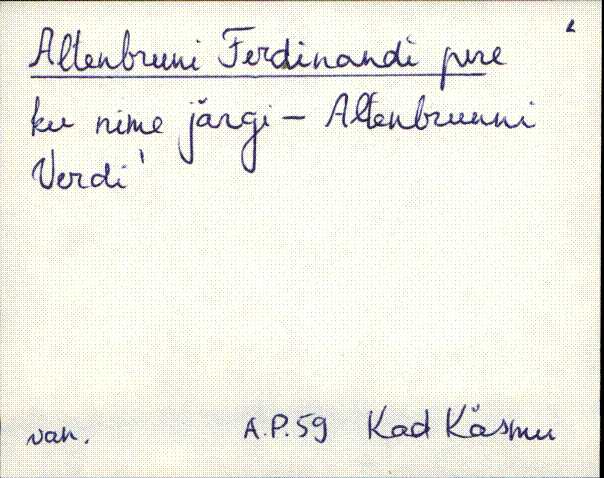 Altenbruni Ferdinandi pere
ku nime järgi – Altenbrunni
Verdi'
van. A.P.59 Kad Käsmu